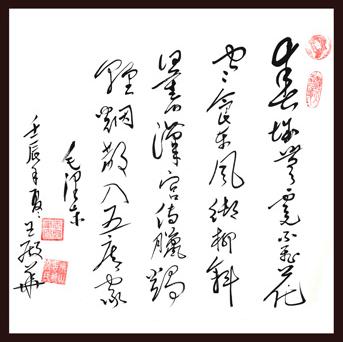 春城無處不飛花
寒食东風御柳斜
日暮漢宮傳蠟燭
輕烟散入五侯家
毛泽东
壬辰年夏 王殿華